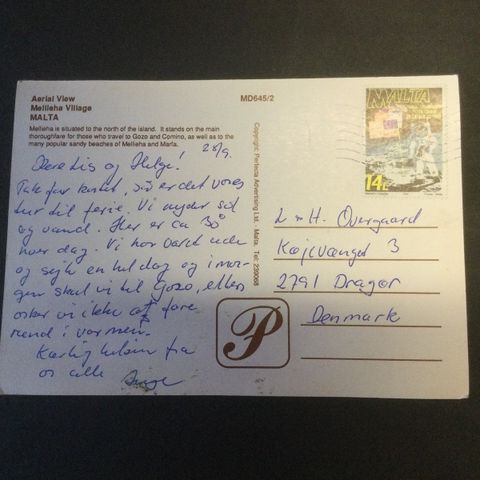 Aerial View
Mellieha Village
MALTA
MD645/2
Mellieha is situated to the north of the island. It stands on the main
thoroughfare for those who travel to Gozo and Comino, as well as to the
many popular sandy beaches of Mellieha and Marfa.
28/9.
Kære Lis og Helge!
Tak for kortet, så er det vores
tur til ferie. Vi nyder sol
og vand. Her er ca 30°
hver dag. Vi har været ude
og sejle en hel dag og i mor-
gen skal vi til Gozo, ellers
orker vi ikke at fare
rundt i varmen.
Kærlig hilsen fra
os alle
Copyright: Perfecta Advertising Ltd. - Malta. Tel: 239068
P
MALTA
14c
L + H. Overgaard
Kajevænget 3
2791 Dragør
Denmark